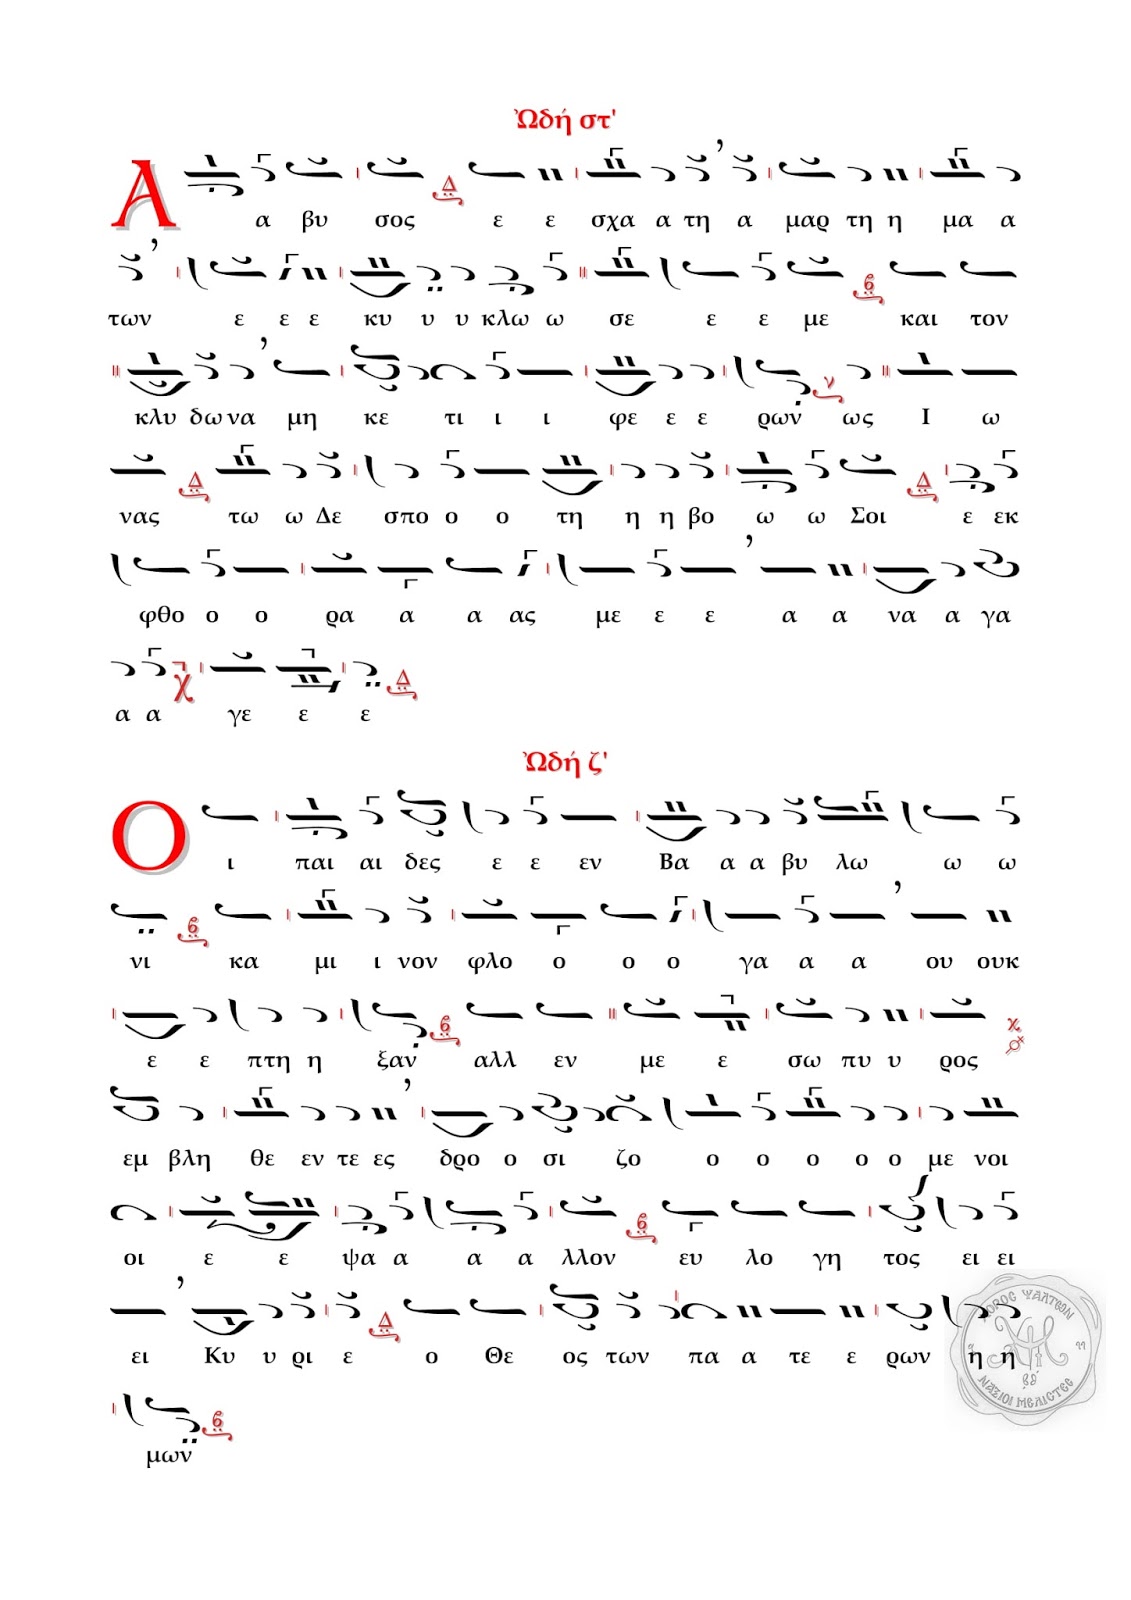 Ὠδή στ'
Α α βυ σος ε ε σχα α τη α μαρ τη η μα α
των ε ε ε κυ υ υ κλω ω σε ε ε με και τον
κλυ δω να μη κε τι ι ι φε ε ε ρων ως Ι ω
νας τω ω Δε σπο ο ο τη η η βο ω ω Σοι ε εκ
φθο ο ο ρα α α ας με ε ε α α να α γα
α α γε ε ε
Ὠδή ζ'
Ο ι παι αι δες ε ε εν Βα α α βυ λω ω ω
νι κα μι ι νον φλο ο ο ο γα α α ου ουκ
ε ε πτη η ξαν αλλ εν με ε σω πυ υ ρος
εμ βλη θε εν τε ες δρο ο σι ζο ο ο ο ο ο με νοι
οι ε ε ψα α α α λλον ευ λο γη τος ει ει
ει Κυ υ ρι ε ο Θε ος των πα α τε ε ρων η η
μων
ΧΟΡΟΣ ΨΑΛΤΩΝ
ΝΑΞΙΟΙ ΜΕΛΙΣΤΕΣ